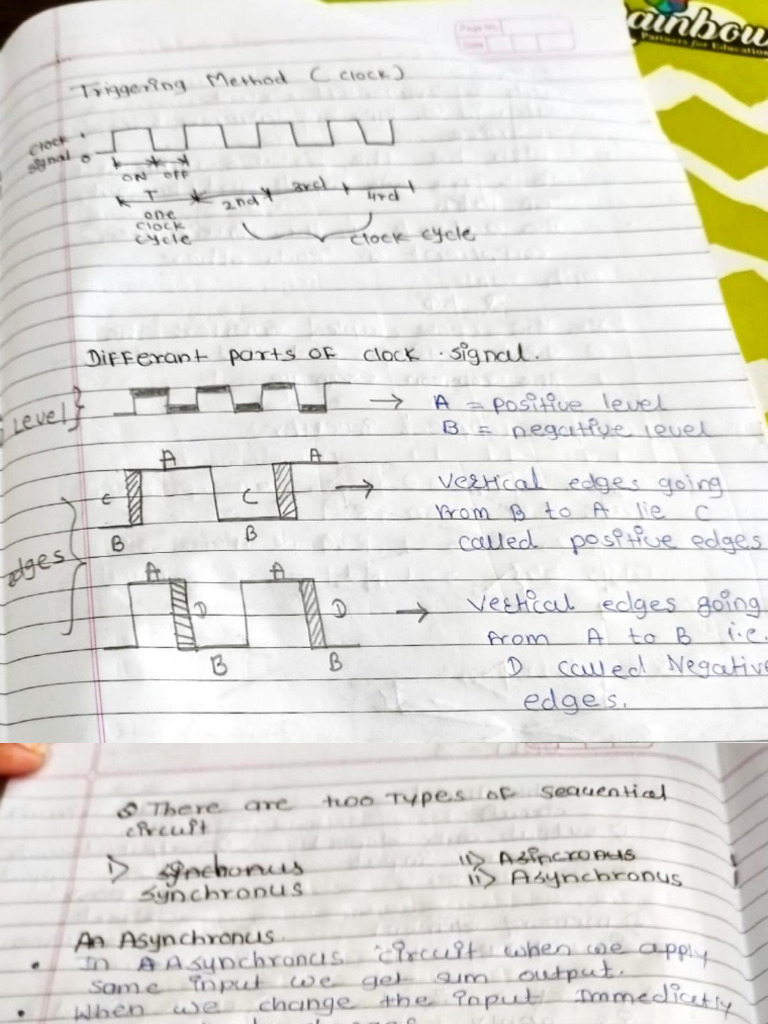 ainbow
Partners for Education
Page No.
Date
Triggering Method (clock)
clock 1
signal 0
ON OFF
T 2nd 3rd 4rd
one
clock
cycle
clock cycle
Differant parts of clock signal.
Level
A = positive level
B = negative level
A A
C C
B B
vertical edges going
from B to A ie C
called positive edges
edges
A A
D D
B B
vertical edges going
from A to B i.e.
D called Negative
edges.
There are two Types of Sequential
circuit
i) synchonus ii) Asincronus
synchronus ii) Asynchronus
An Asynchronus.
• In A Asynchronus circuit when we apply
same input we get sum output.
• When we change the input immedictly